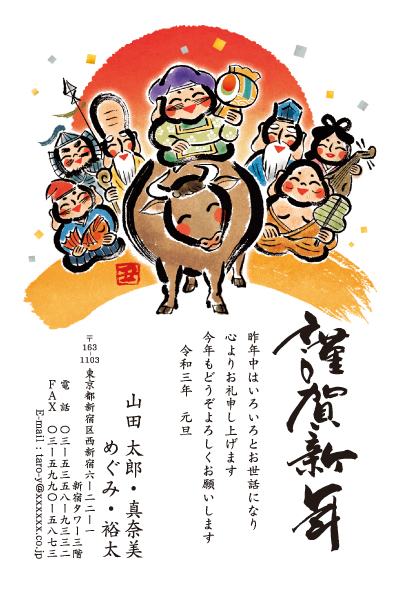 謹賀新年
昨年中はいろいろとお世話になり
心よりお礼申し上げます
今年もどうぞよろしくお願いします
令和三年 元旦
山田 太郎・真奈美
めぐみ・裕太
〒163-1103
東京都新宿区西新宿六ー二二ー一
新宿タワー三階
電話 〇三ー五三五八ー九三三二
FAX 〇三ー五九九〇ー五八七三
E-mail:taro-y@xxxxxx.co.jp
丑